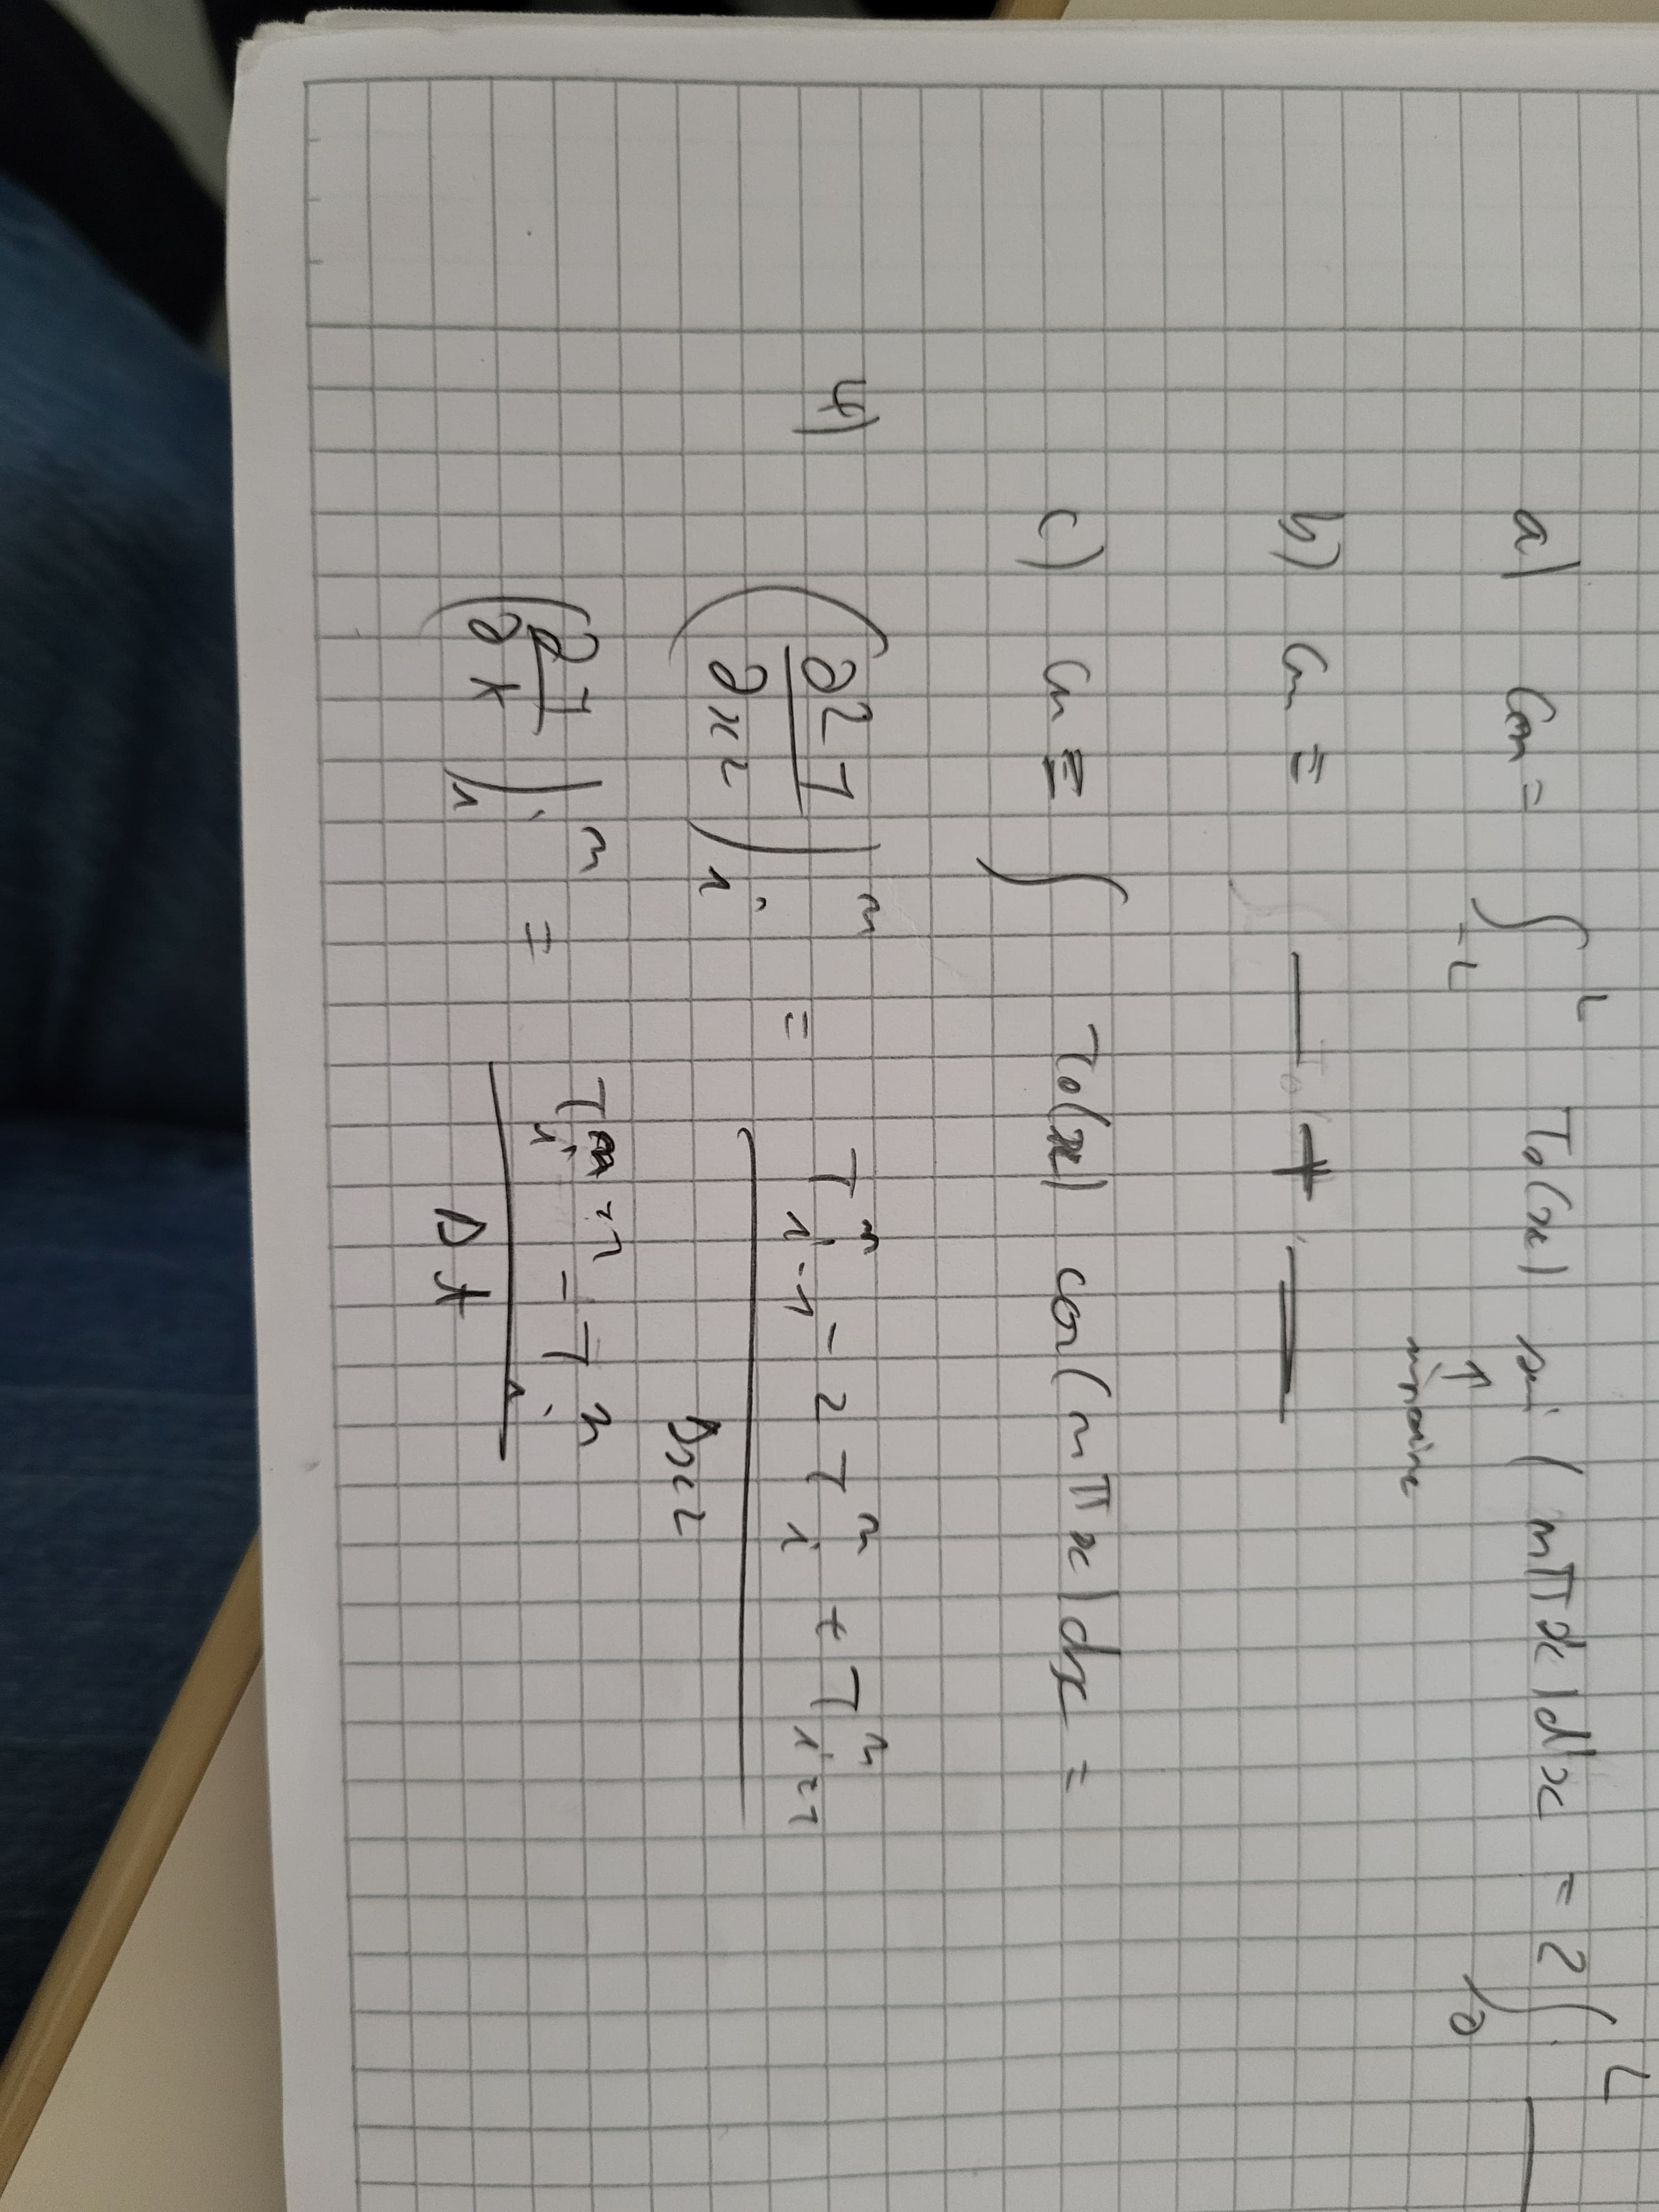 a) Cn = ∫_{-L}^{L} T₀(x) sin(nπx)dx = 2∫_{0}^{L} —
↑
b) Cn ≡ — + —
c) Cn ≡ ∫ T₀(x) cos(nπx)dx =
4) (∂²T/∂x²)_i^n = (T_{i-1}^n - 2T_i^n + T_{i+1}^n)/Δx²
(∂T/∂t)_i^n = (T_i^{n+1} - T_i^n)/Δt